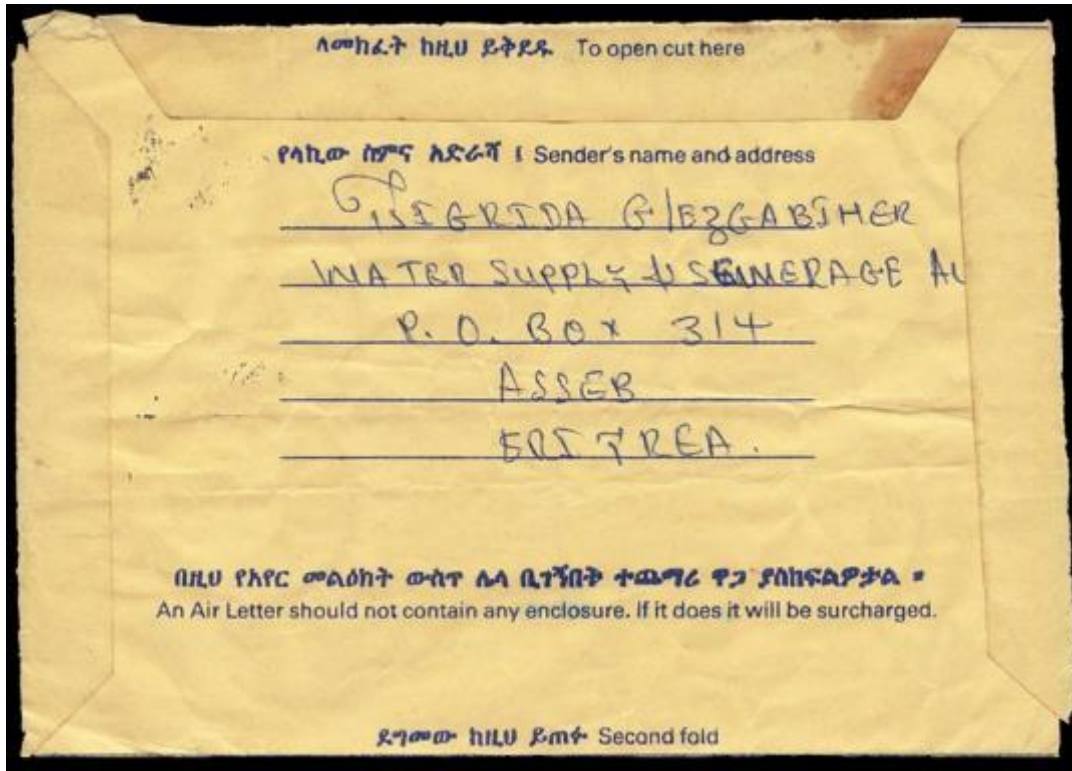 ለመክፈት ከዚህ ይቅደዱ To open cut here
የላኪው ስምና አድራሻ ፤ Sender's name and address
TSIGRIDA G/EZGABIHER
WATER SUPPLY & SEWERAGE AU
P. O. BOX 314
ASSEB
ERITREA.
በዚህ የአየር መልዕክት ውስጥ ሌላ ቢገኝበት ተጨማሪ ዋጋ ያስከፍልዎታል ።
An Air Letter should not contain any enclosure. If it does it will be surcharged.
ደግመው ከዚህ ይጠፉ Second fold